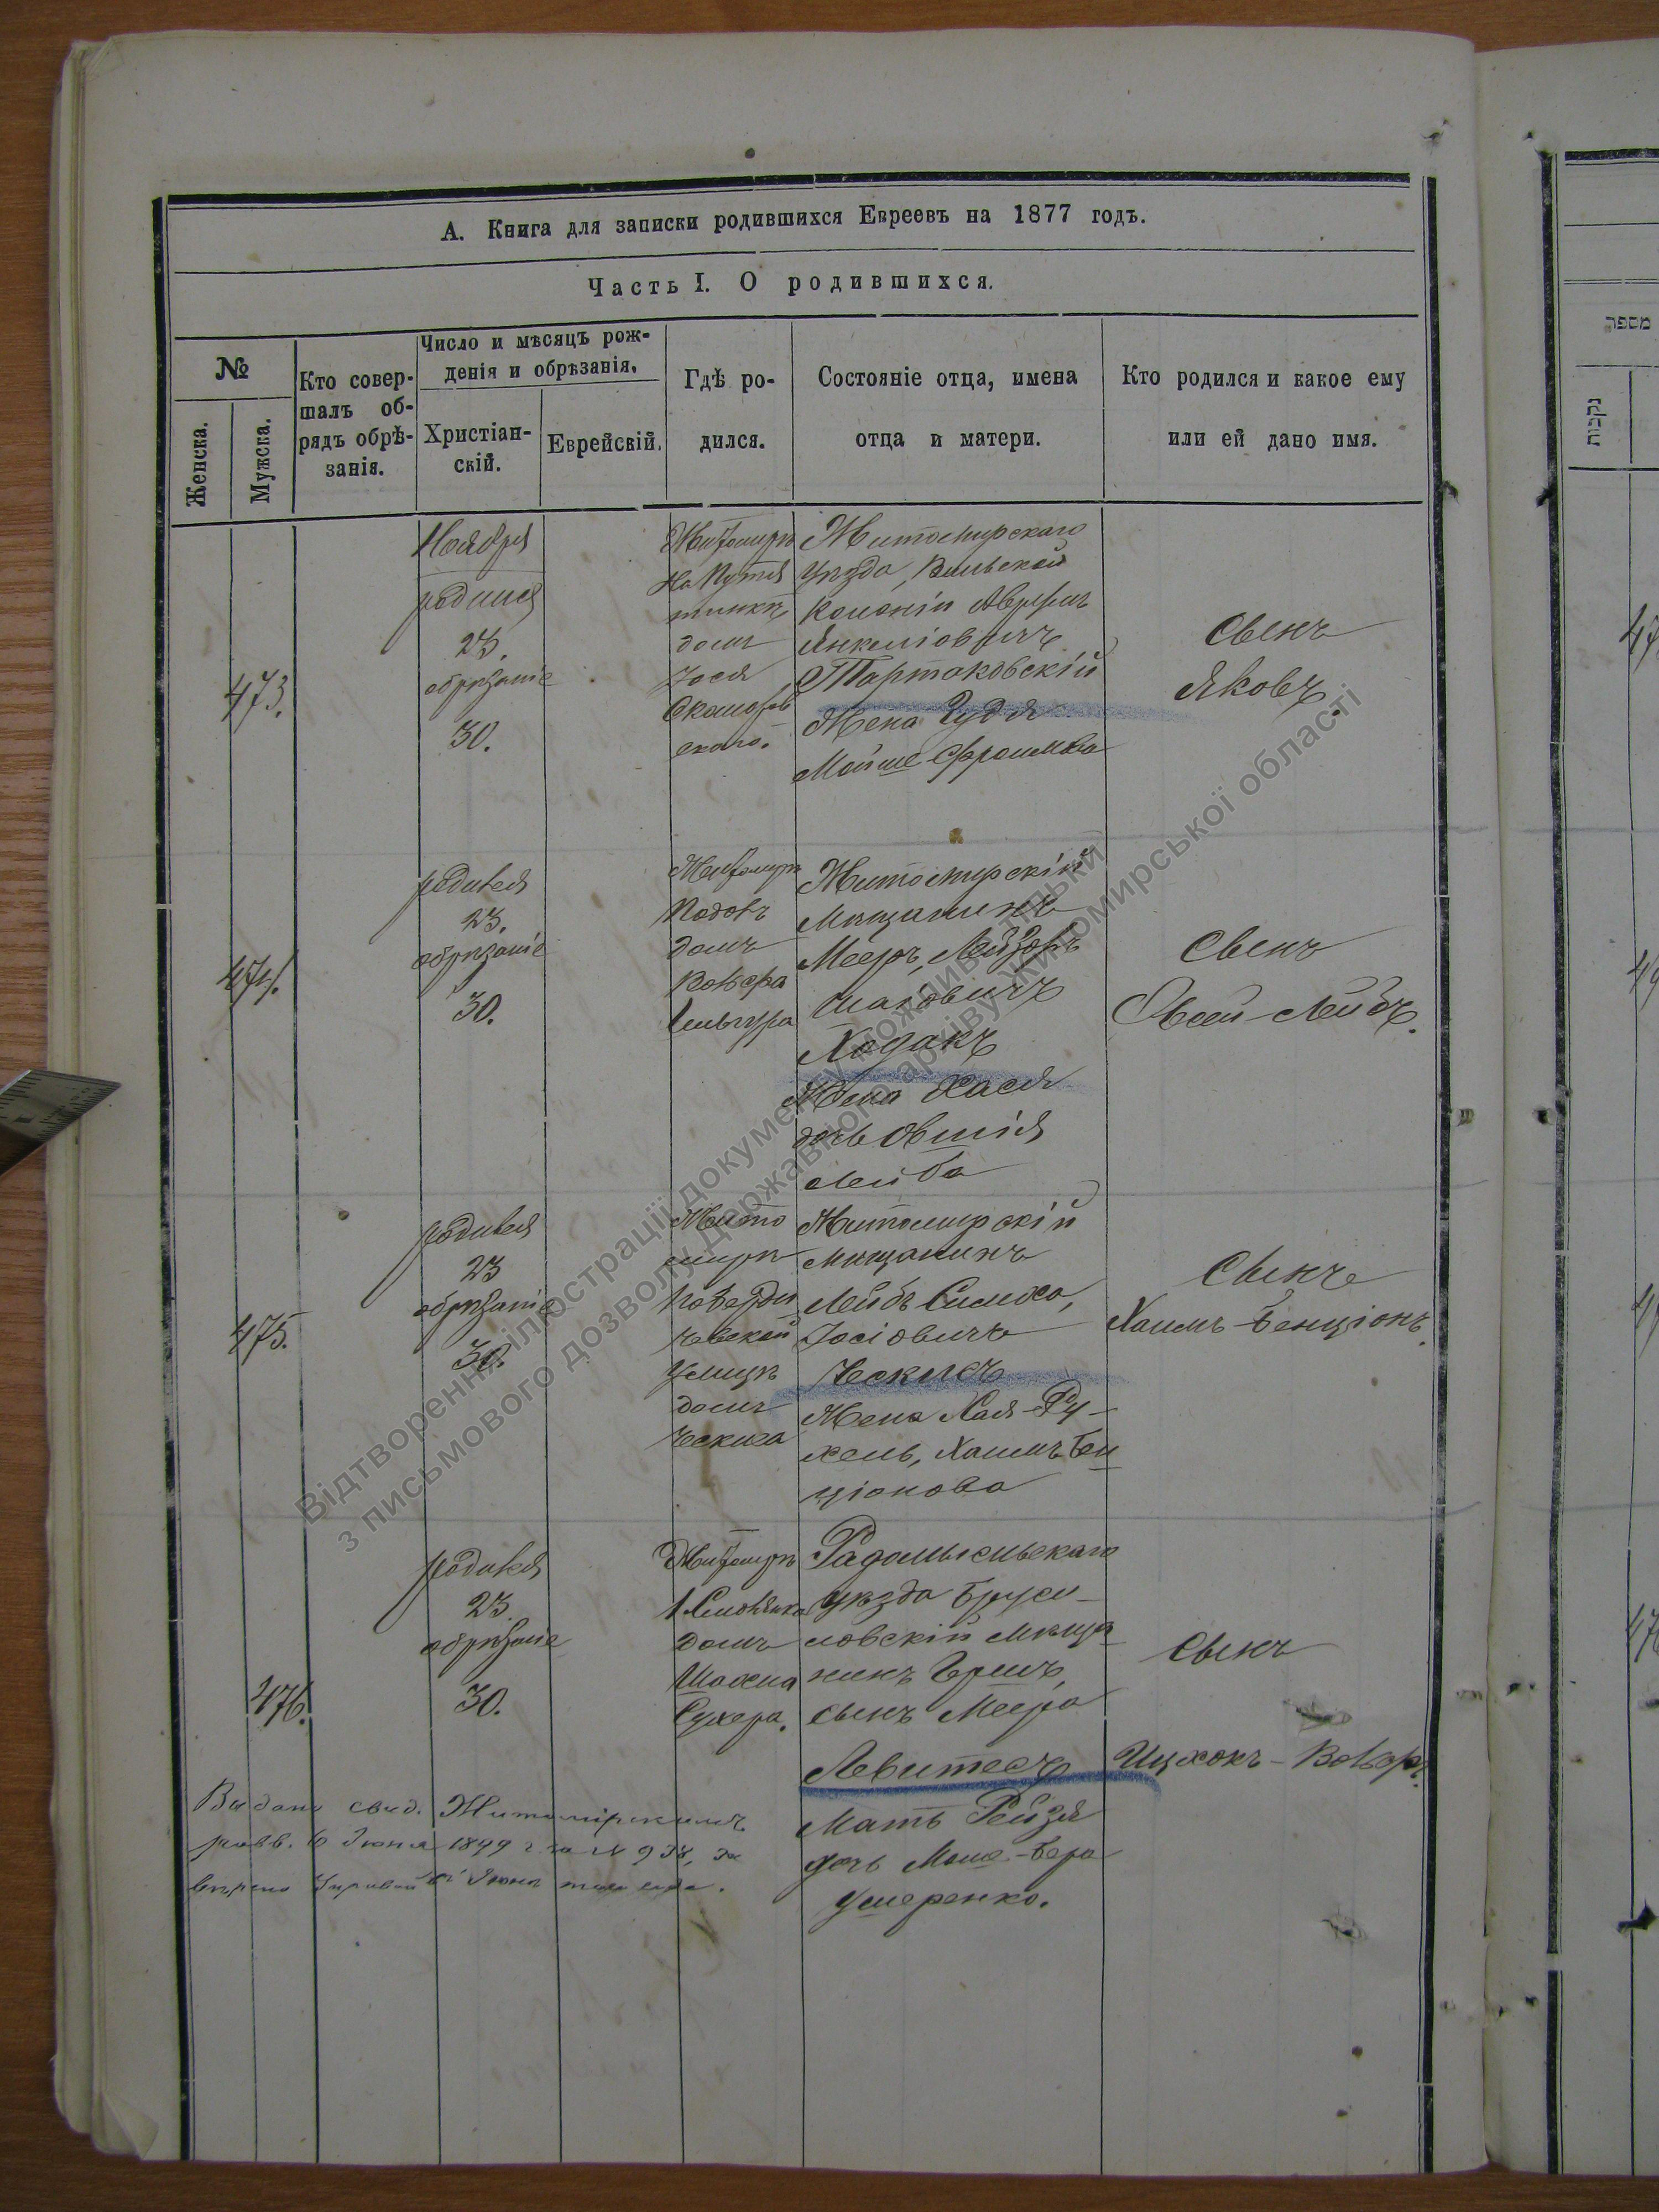 А. Книга для записки родившихся Евреевъ на 1877 годъ.
Часть I. О родившихся.
№
Женска.
Мужска.
Кто совер-
шалъ об-
рядъ обрѣ-
занія.
Число и мѣсяцъ рож-
денія и обрѣзанія.
Христіан-
скій.
Еврейскій.
Гдѣ ро-
дился.
Состояніе отца, имена
отца и матери.
Кто родился и какое ему
или ей дано имя.
473.
Ноября
родился
23.
обрѣзаніе
30.
Житомиръ
домъ
Іося
Скаморов
скаго.
Житомирскаго
уѣзда, Вильской
колоніи
Янкеліовичъ
Тартаковскій
Жена Гудя
Мойше Фроимова
Сынъ
Яковъ.
474.
родился
23.
обрѣзаніе
30.
Житомиръ
домъ
Житомирскій
Мѣщанинъ
Мееръ, Лейзоръ
Ходакъ
Жена Хася
дочь Овшія
Лейба
Сынъ
Овсей-Лейбъ.
475.
родился
23
обрѣзаніе
30.
Жито
миръ
по Берди
чевской
улицѣ
домъ
Ческиса
Житомирскій
Мѣщанинъ
Лейбъ Симха,
Іосіовичъ
Ческисъ
Жена Хая-Ру-
хель, Хаимъ Бен
ціонова
Сынъ
Хаимъ-Бенціонъ.
476.
родился
23.
обрѣзаніе
30.
Житомиръ
домъ
Шахна
Сухера.
Радомысльскаго
уѣзда Бруси-
ловскій мѣща
нинъ Гершъ,
сынъ Меера
Левитесъ
Мать Рейзя
дочь Моше-Бера
Умеренко.
Сынъ
Ицхокъ-Волфъ.
Выдано свид. Житомірскимъ
равв. 6 Іюня 1899 г за № 938, за
вѣрено Управой Іюня того года.
מספר
נקבות
Відтворення ілюстрації документу можливо тільки
з письмового дозволу Державного архіву Житомирської області